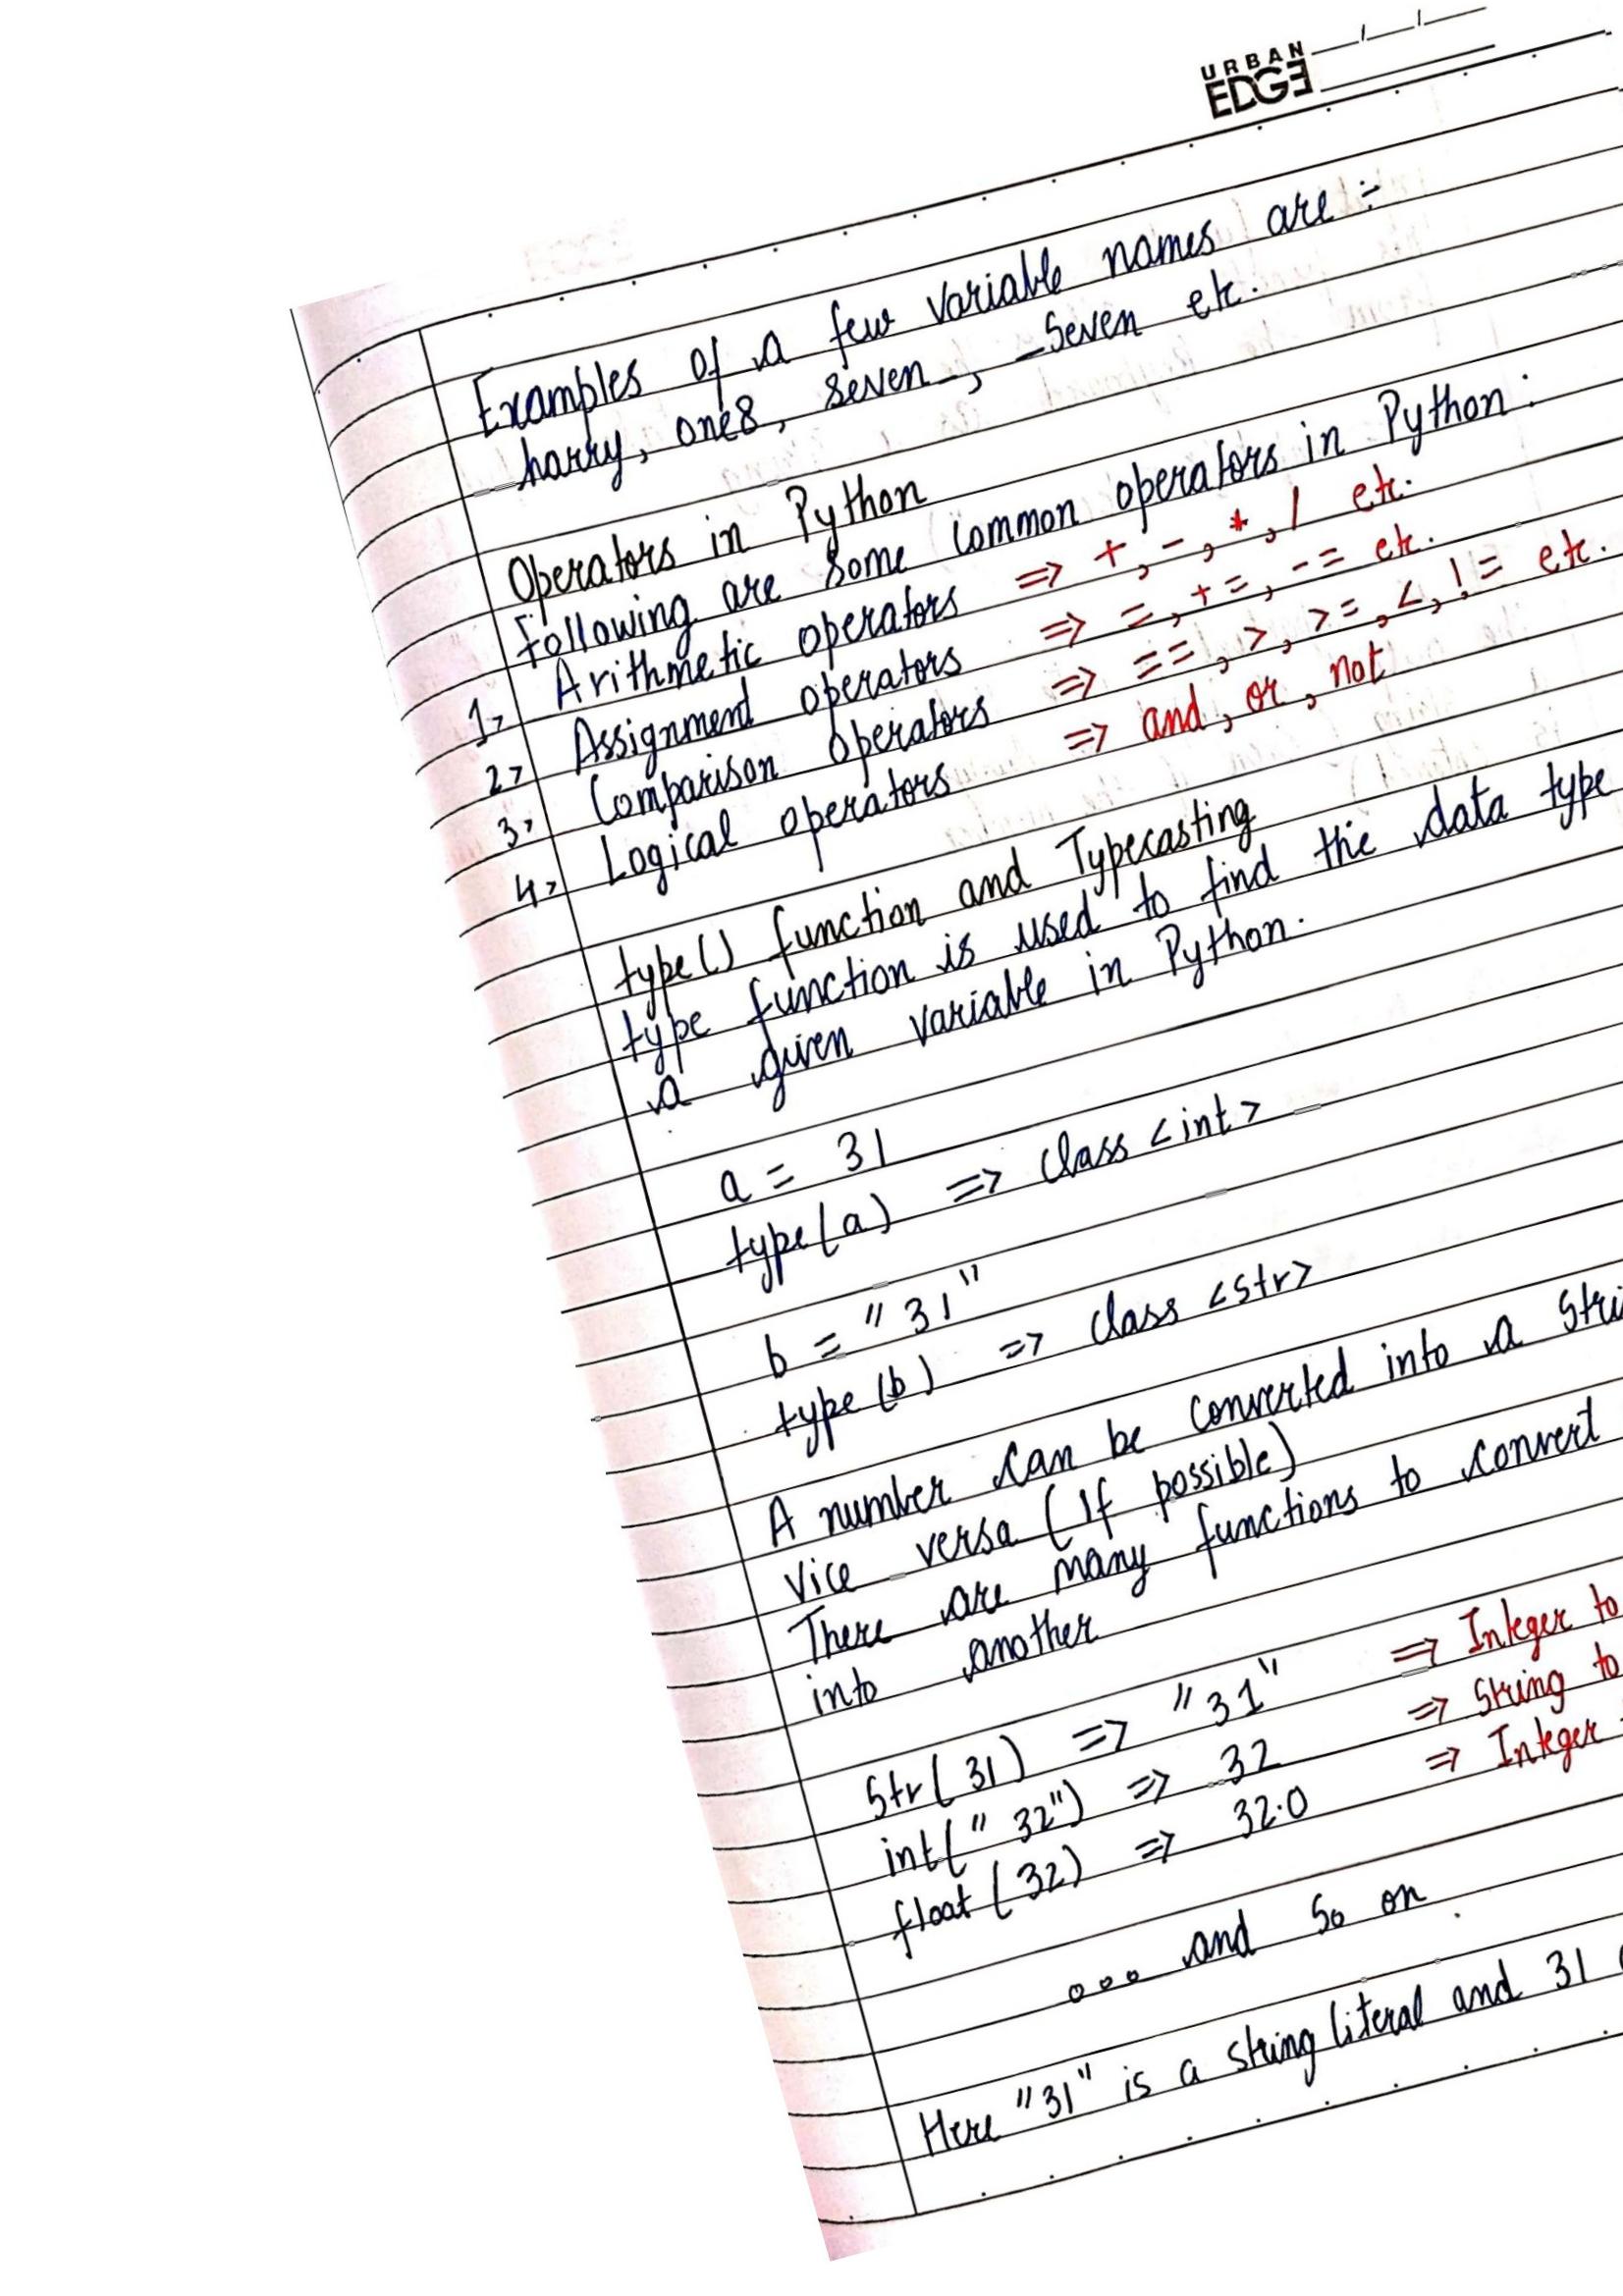 URBAN
EDGE
Examples of a few variable names are :-
harry, one8, seven_, _seven etc.
Operators in Python
Following are some common operators in Python :
1> Arithmetic operators => +, -, *, / etc.
2> Assignment operators => =, +=, -= etc.
3> Comparison operators => ==, >, >=, <, != etc.
4> Logical operators => and, or, not
type() function and Typecasting
type function is used to find the data type
a given variable in Python.
a = 31
type(a) => class <int>
b = "31"
type(b) => class <str>
A number can be converted into a
vice versa (If possible)
There are many functions to convert
into another
Str(31) => "31" => Integer to
int("32") => 32 => String to
float(32) => 32.0 => Integer
... and so on.
Here "31" is a string literal and 31